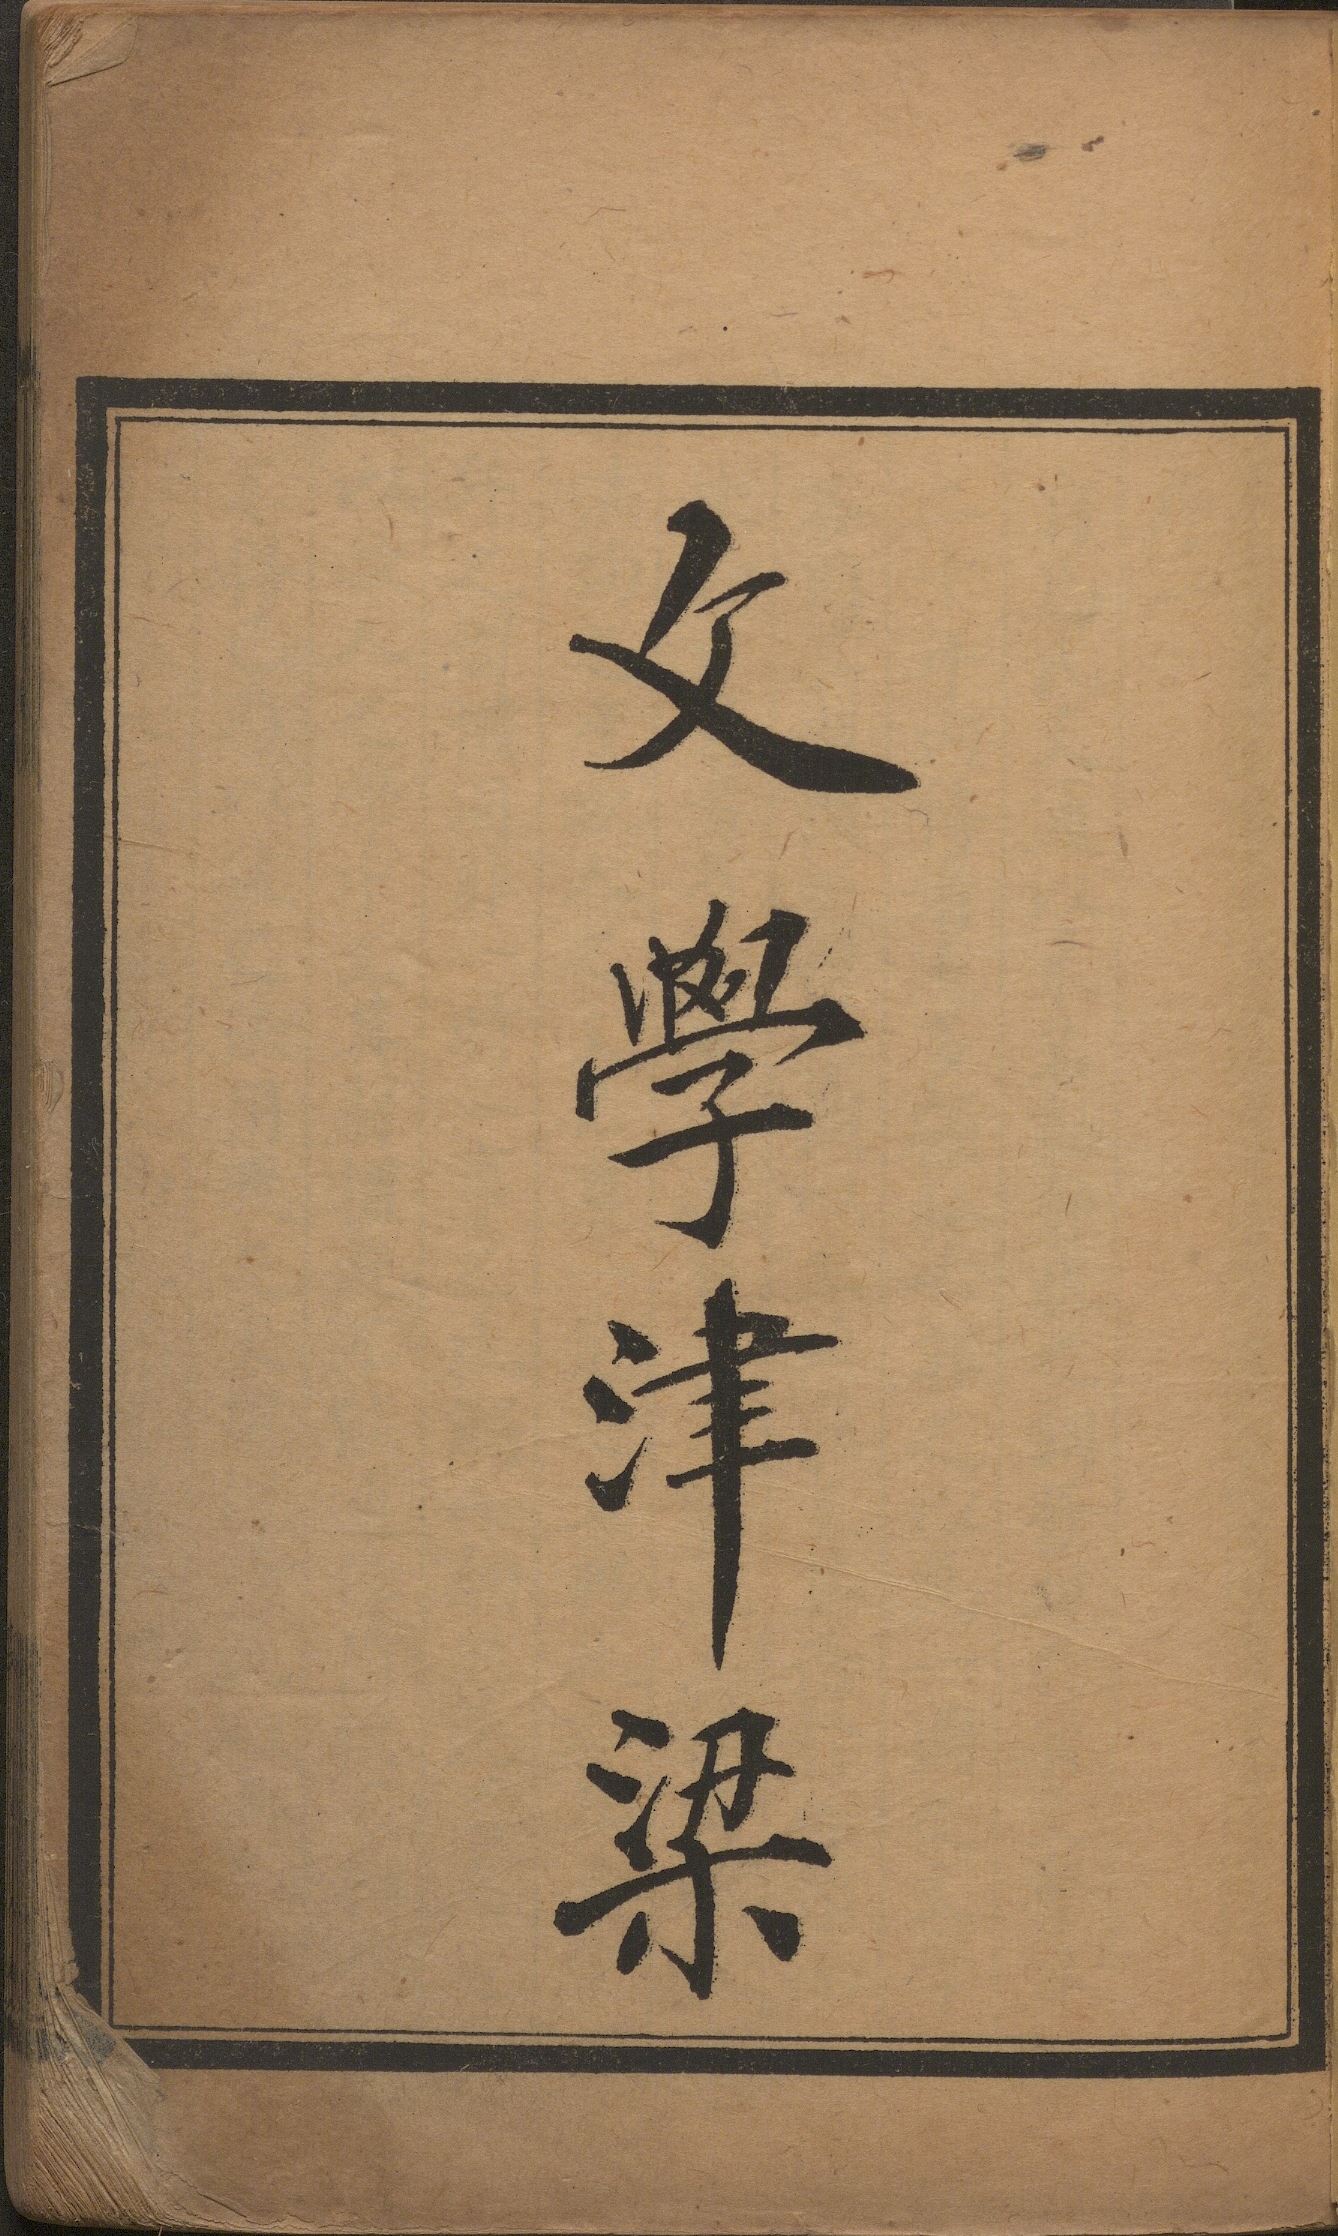 文學津梁